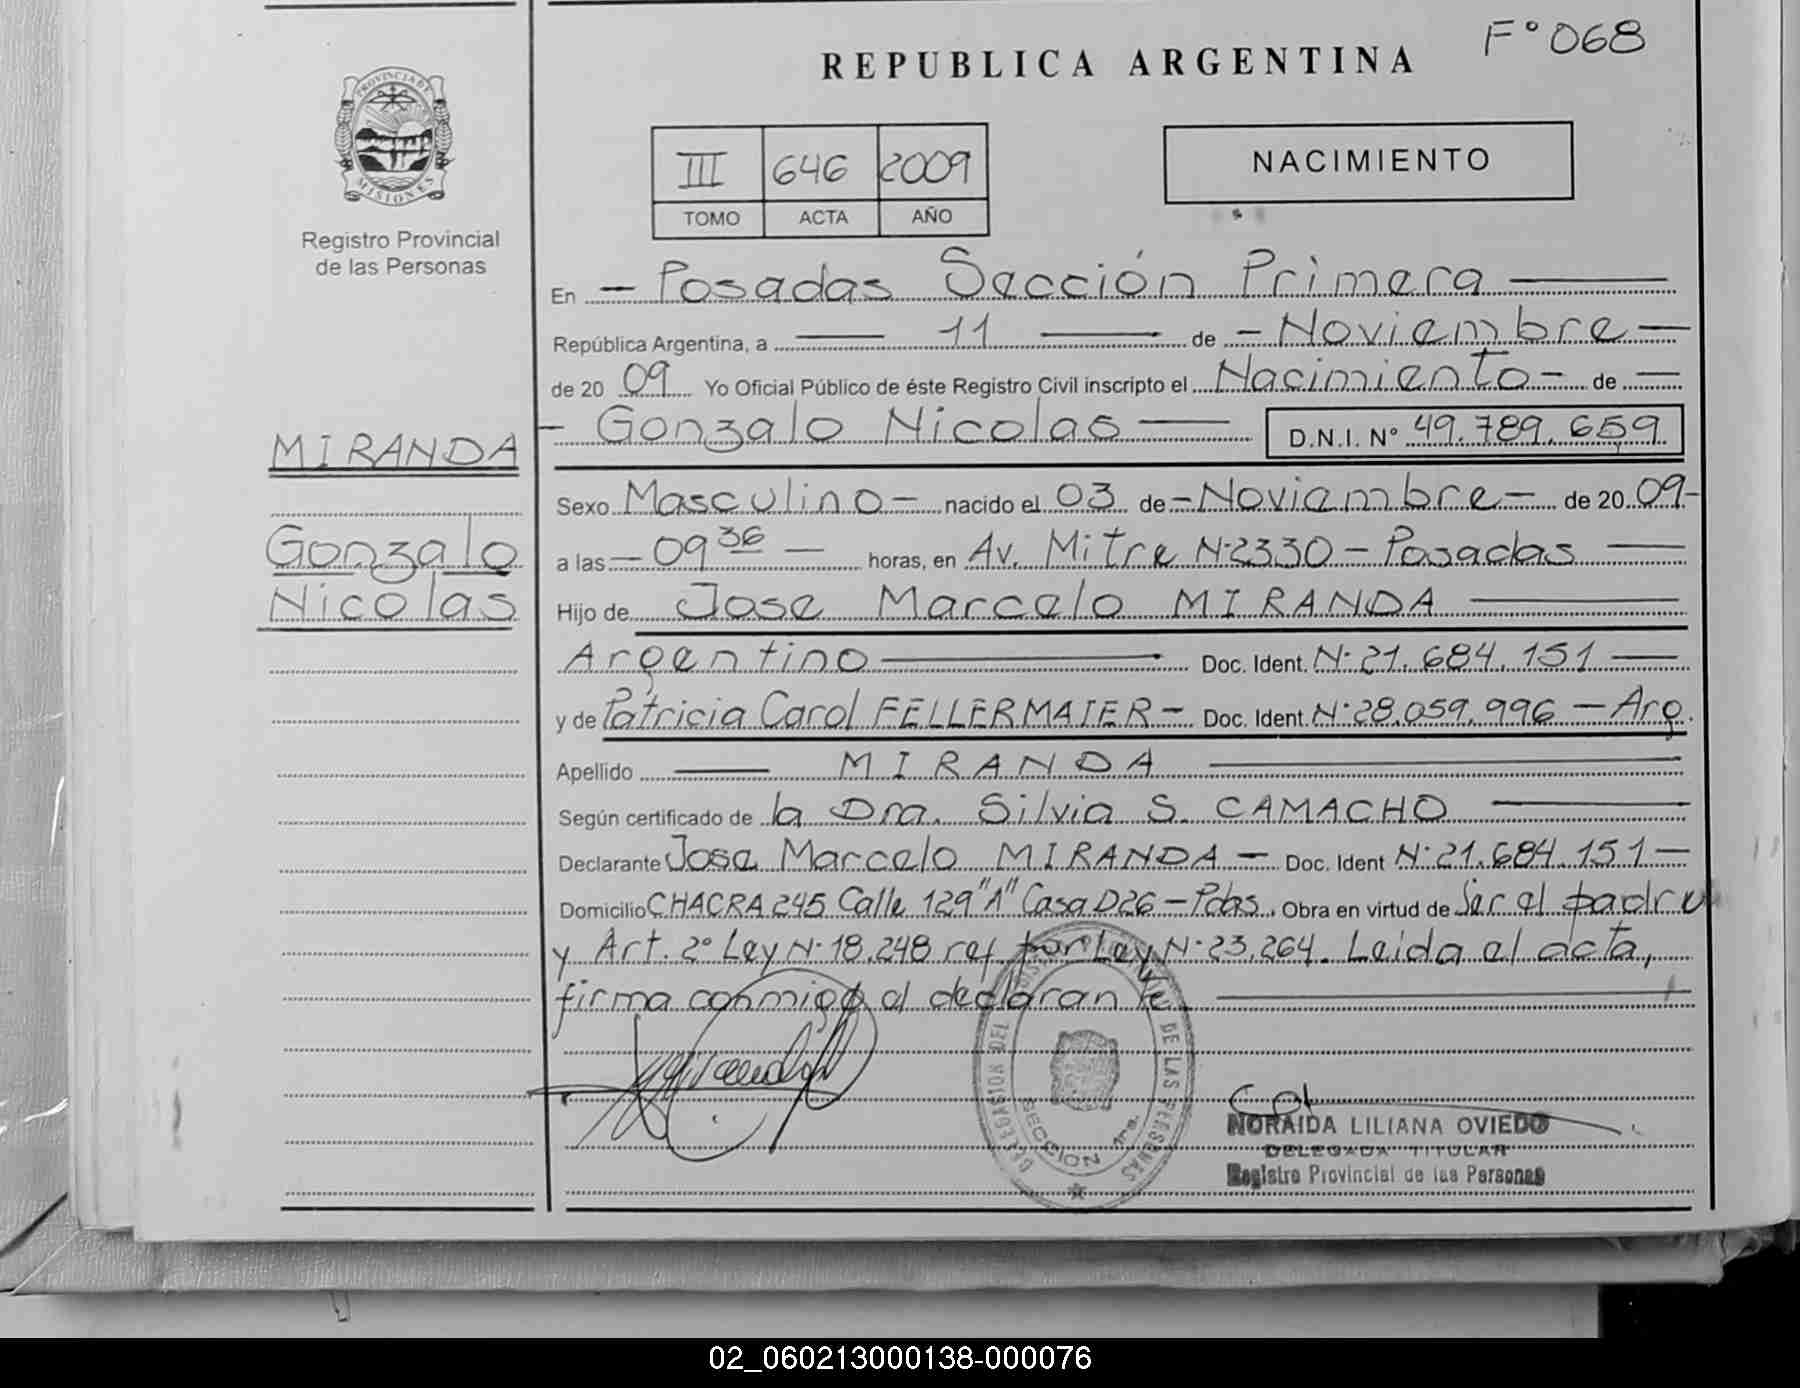 F° 068
REPUBLICA ARGENTINA
PROVINCIA DE
MISIONES
Registro Provincial
de las Personas
III 646 2009
TOMO ACTA AÑO
NACIMIENTO
En - Posadas Sección Primera
República Argentina, a 11 de - Noviembre -
de 20 09 Yo Oficial Público de éste Registro Civil inscripto el Nacimiento - de -
- Gonzalo Nicolas D.N.I. N° 49.789.659
MIRANDA
Gonzalo
Nicolas
Sexo Masculino - nacido el 03 de - Noviembre - de 20 09 -
a las - 09 36 - horas, en Av. Mitre N°2330 - Posadas
Hijo de Jose Marcelo MIRANDA
Argentino Doc. Ident. N° 21.684.151
y de Patricia Carol FELLERMAIER - Doc. Ident. N° 28.059.996 - Arg.
Apellido MIRANDA
Según certificado de la Dra. Silvia S. CAMACHO
Declarante Jose Marcelo MIRANDA - Doc. Ident N° 21.684.151
Domicilio CHACRA 245 Calle 129 "A" Casa D26 - Pdas. Obra en virtud de Ser el padre
y Art. 2° Ley N° 18.248 ref. por Ley N° 23.264. Leida el acta,
firma conmigo el declarante
DELEGACION DEL REGISTRO PROVINCIAL DE LAS PERSONAS
SECCION 1ra.
NORAIDA LILIANA OVIEDO
DELEGADA TITULAR
Registro Provincial de las Personas
02_060213000138-000076